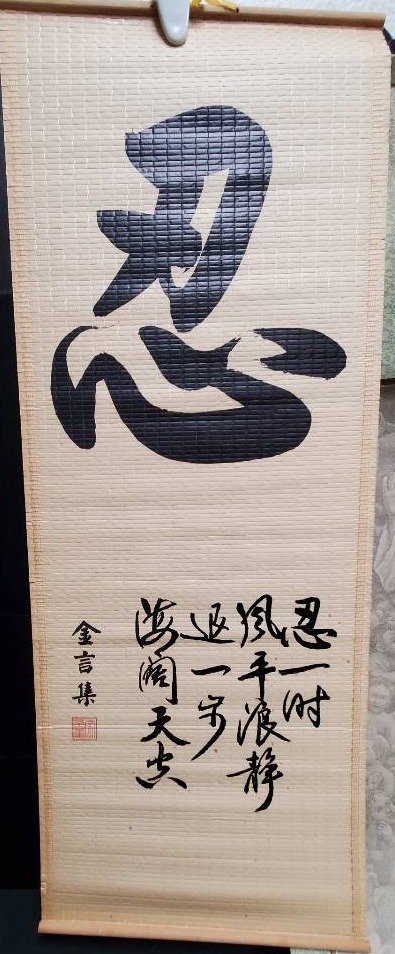 忍
忍一时
风平浪静
退一步
海阔天空
金言集